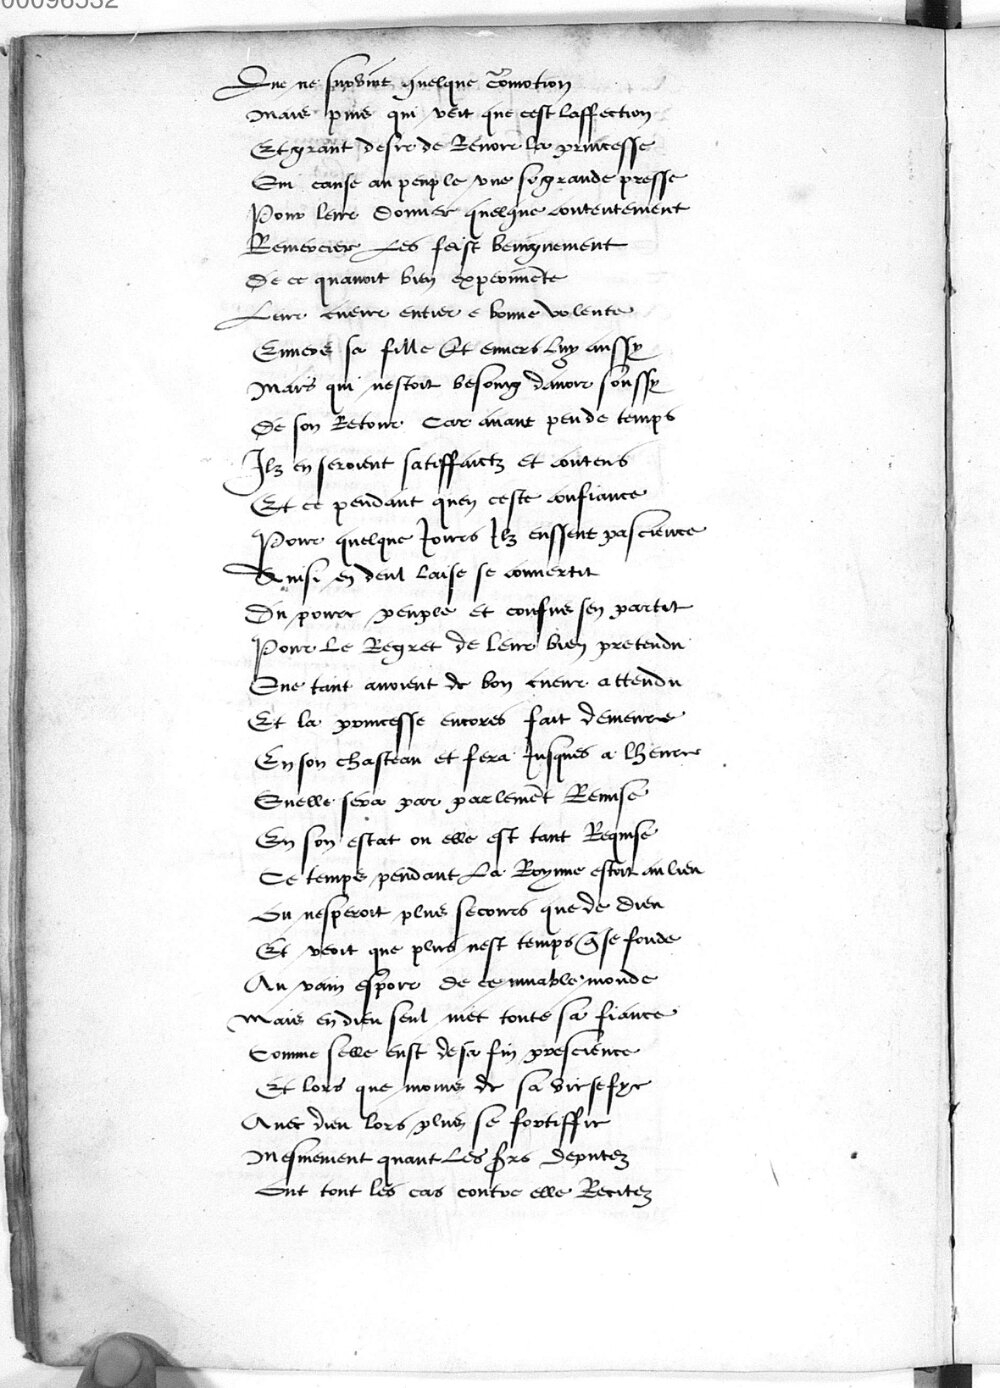 00096532
Que ne survint quelque comotion
Mais puis qui veit que cest laffection
Et grant desir de Reveoir la princesse
Qui cause au peuple une si grande presse
Pour leur donner quelque contentement
Remercier Les feist benignement
De ce quavoit bien experimente
Leur cueur entier e bonne volente
Envers sa fille Et envers luy aussy
Mais qui nestoit besoing davoir soussy
De son Retour Car avant peu de temps
Ilz en seroient satisffaictz et contens
Et ce pendant quen ceste confiance
Pour quelque Jours Ilz eussent pascience
Ainsi en deul laise se convertit
Du povre peuple et confus sen partit
Pour Le Regret de leur bien pretendu
Que tant avoient de bon cueur attendu
Et la princesse encores fait demeure
En son chasteau et fera Jusques a lheure
Quelle sera par parlement Remise
En son estat ou elle est tant Requise
Ce temps pendant La Royne estoit au lieu
Ou nesperoit plus secours que de dieu
Et veoit que plus nest temps q se fonde
Au vain espoir de ce muable monde
Mais en dieu seul met toute sa fiance
Comme selle eust de sa fin prescience
Et lors que moins de sa vie se fye
Avec dieu lors plus se fortiffie
Mesmement quant Les srs deputez
Ont tout les cas contre elle Recitez